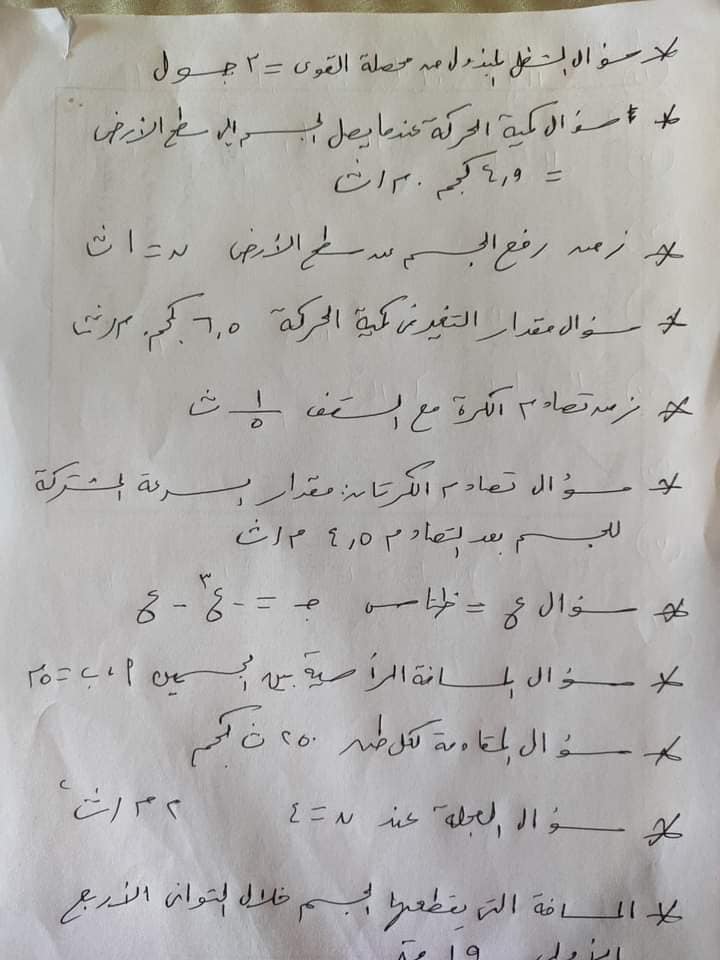 * سؤال الشغل المبذول من محصلة القوى = ٢ جول
* سؤال كمية الحركة عندما يصل الجسم إلى سطح الأرض
= ٤,٩ كجم . م/ث
* زمن رفع الجسم عن سطح الأرض ن = ١ ث
* سؤال مقدار التغير في كمية الحركة ٦,٥ كجم. م/ث
* زمن تصادم الكرة مع السقف ١/٥ ث
* سؤال تصادم الكرتان: مقدار السرعة المشتركة
للجسم بعد التصادم ٤,٥ م/ث
* سؤال ع = ظتاس جـ = - ع٣ - ع
* سؤال المسافة الرأسية بين الجسمين أ، ب =
* سؤال المقاومة لكل طن ٢٥٠ ث كجم
* سؤال العجلة عند ن = ٤ ٢ م/ث٢
* المسافة التي يقطعها الجسم خلال الثواني الأربع
الأولى ١٩ متر